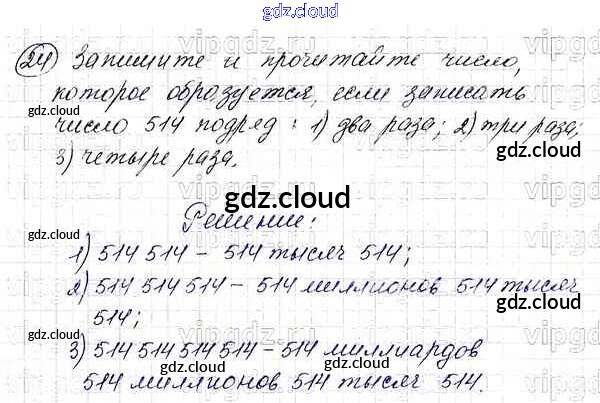 gdz.cloud
24) Запишите и прочитайте число,
которое образуется, если записать
число 514 подряд: 1) два раза; 2) три раза;
3) четыре раза.
Решение:
1) 514 514 - 514 тысяч 514;
2) 514 514 514 - 514 миллионов 514 тысяч
514;
3) 514 514 514 514 - 514 миллиардов
514 миллионов 514 тысяч 514.
gdz.cloud
gdz.cloud
gdz.cloud
gdz.cloud
gdz.cloud
gdz.cloud
gdz.cloud
gdz.cloud
gdz.cloud